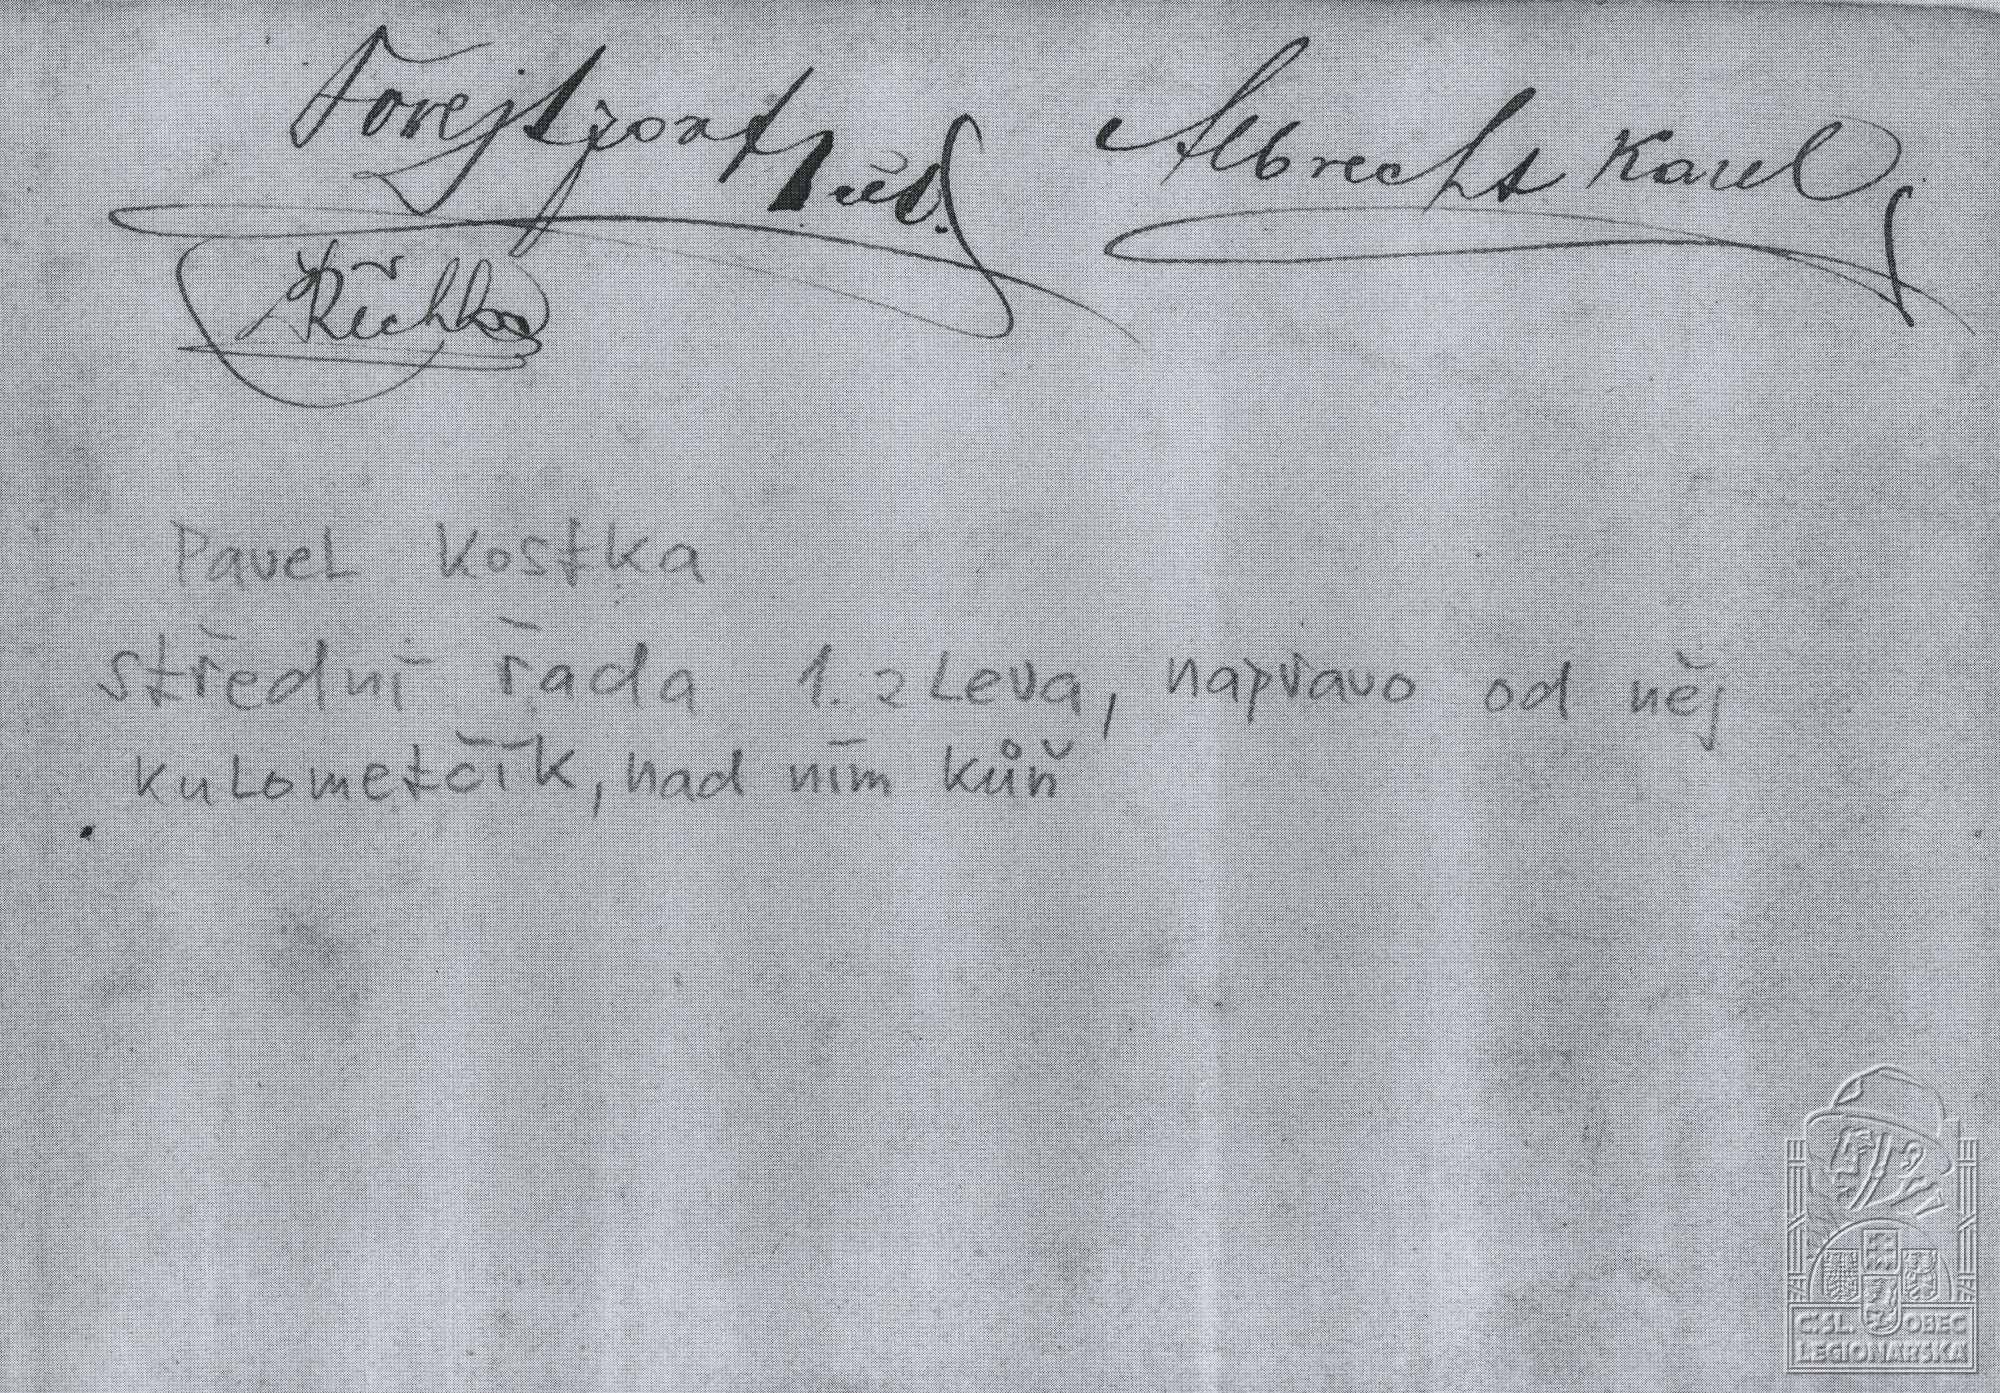 Albrecht Karel
Řečhka
Pavel Kostka
střední řada 1. zleva, napravo od něj
kulometčík, nad ním kůň
Č.SL. OBEC
LEGIONÁŘSKÁ